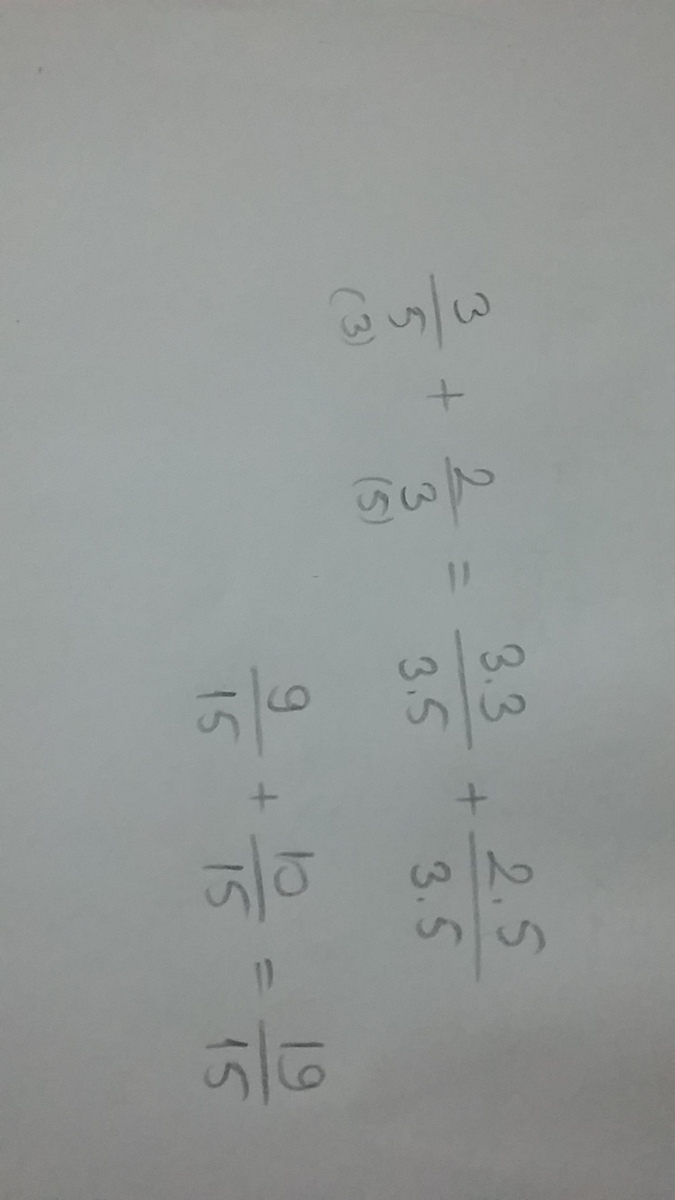 3/5 (3) + 2/3 (5) = 3.3/3.5 + 2.5/3.5
9/15 + 10/15 = 19/15